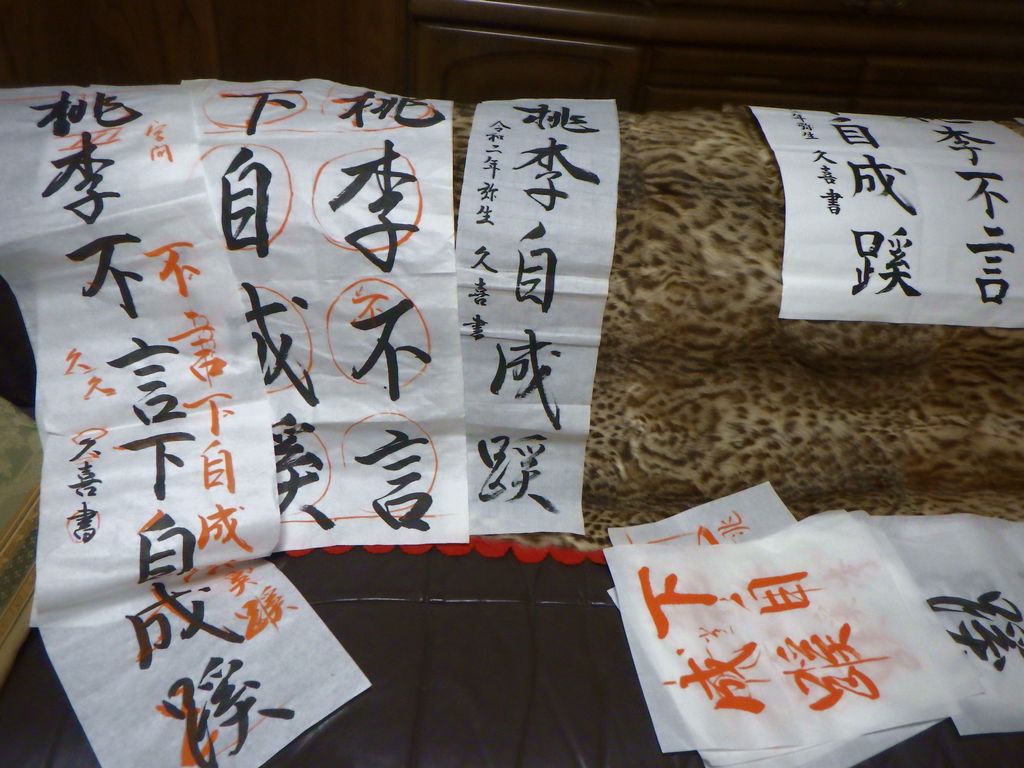 桃李不言下自成蹊
空間
不言下自成蹊
久久
久喜書
桃李不言
下自成蹊
不
桃李自成蹊
令和二年弥生 久喜書
李不言
自成蹊
年弥生 久喜書
下自
成蹊
蹊